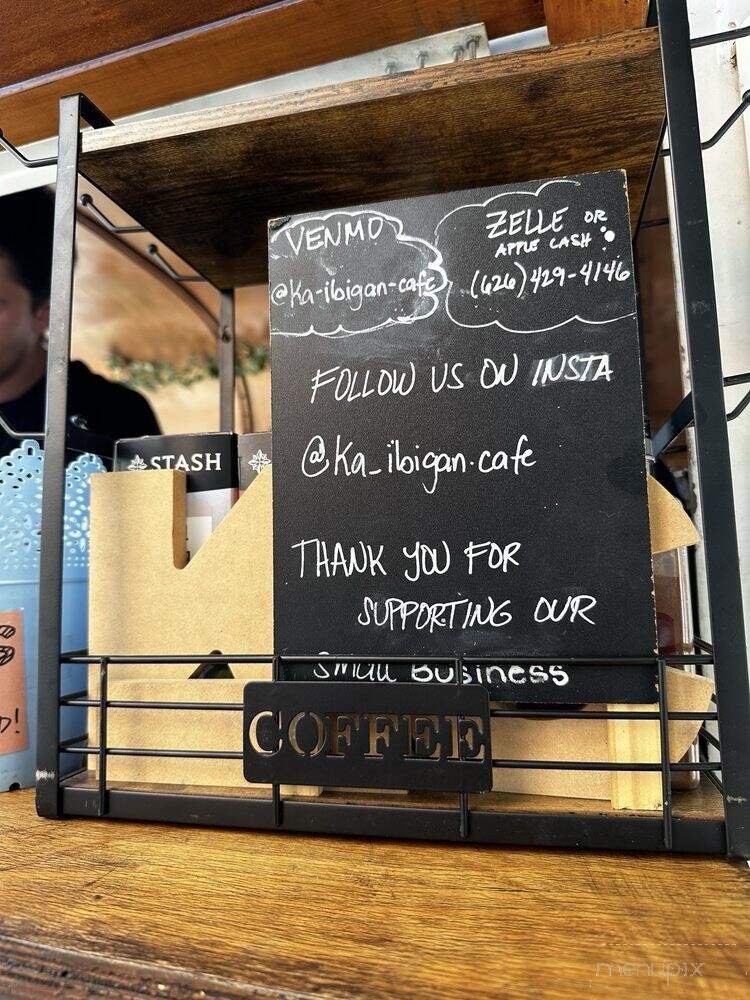 VENMO
@Ka-ibigan-cafe
ZELLE OR
APPLE CASH:
(626) 429-4146
FOLLOW US ON INSTA
@Ka_ibigan.cafe
THANK YOU FOR
SUPPORTING OUR
Small Business
COFFEE
STASH
D!
menupix